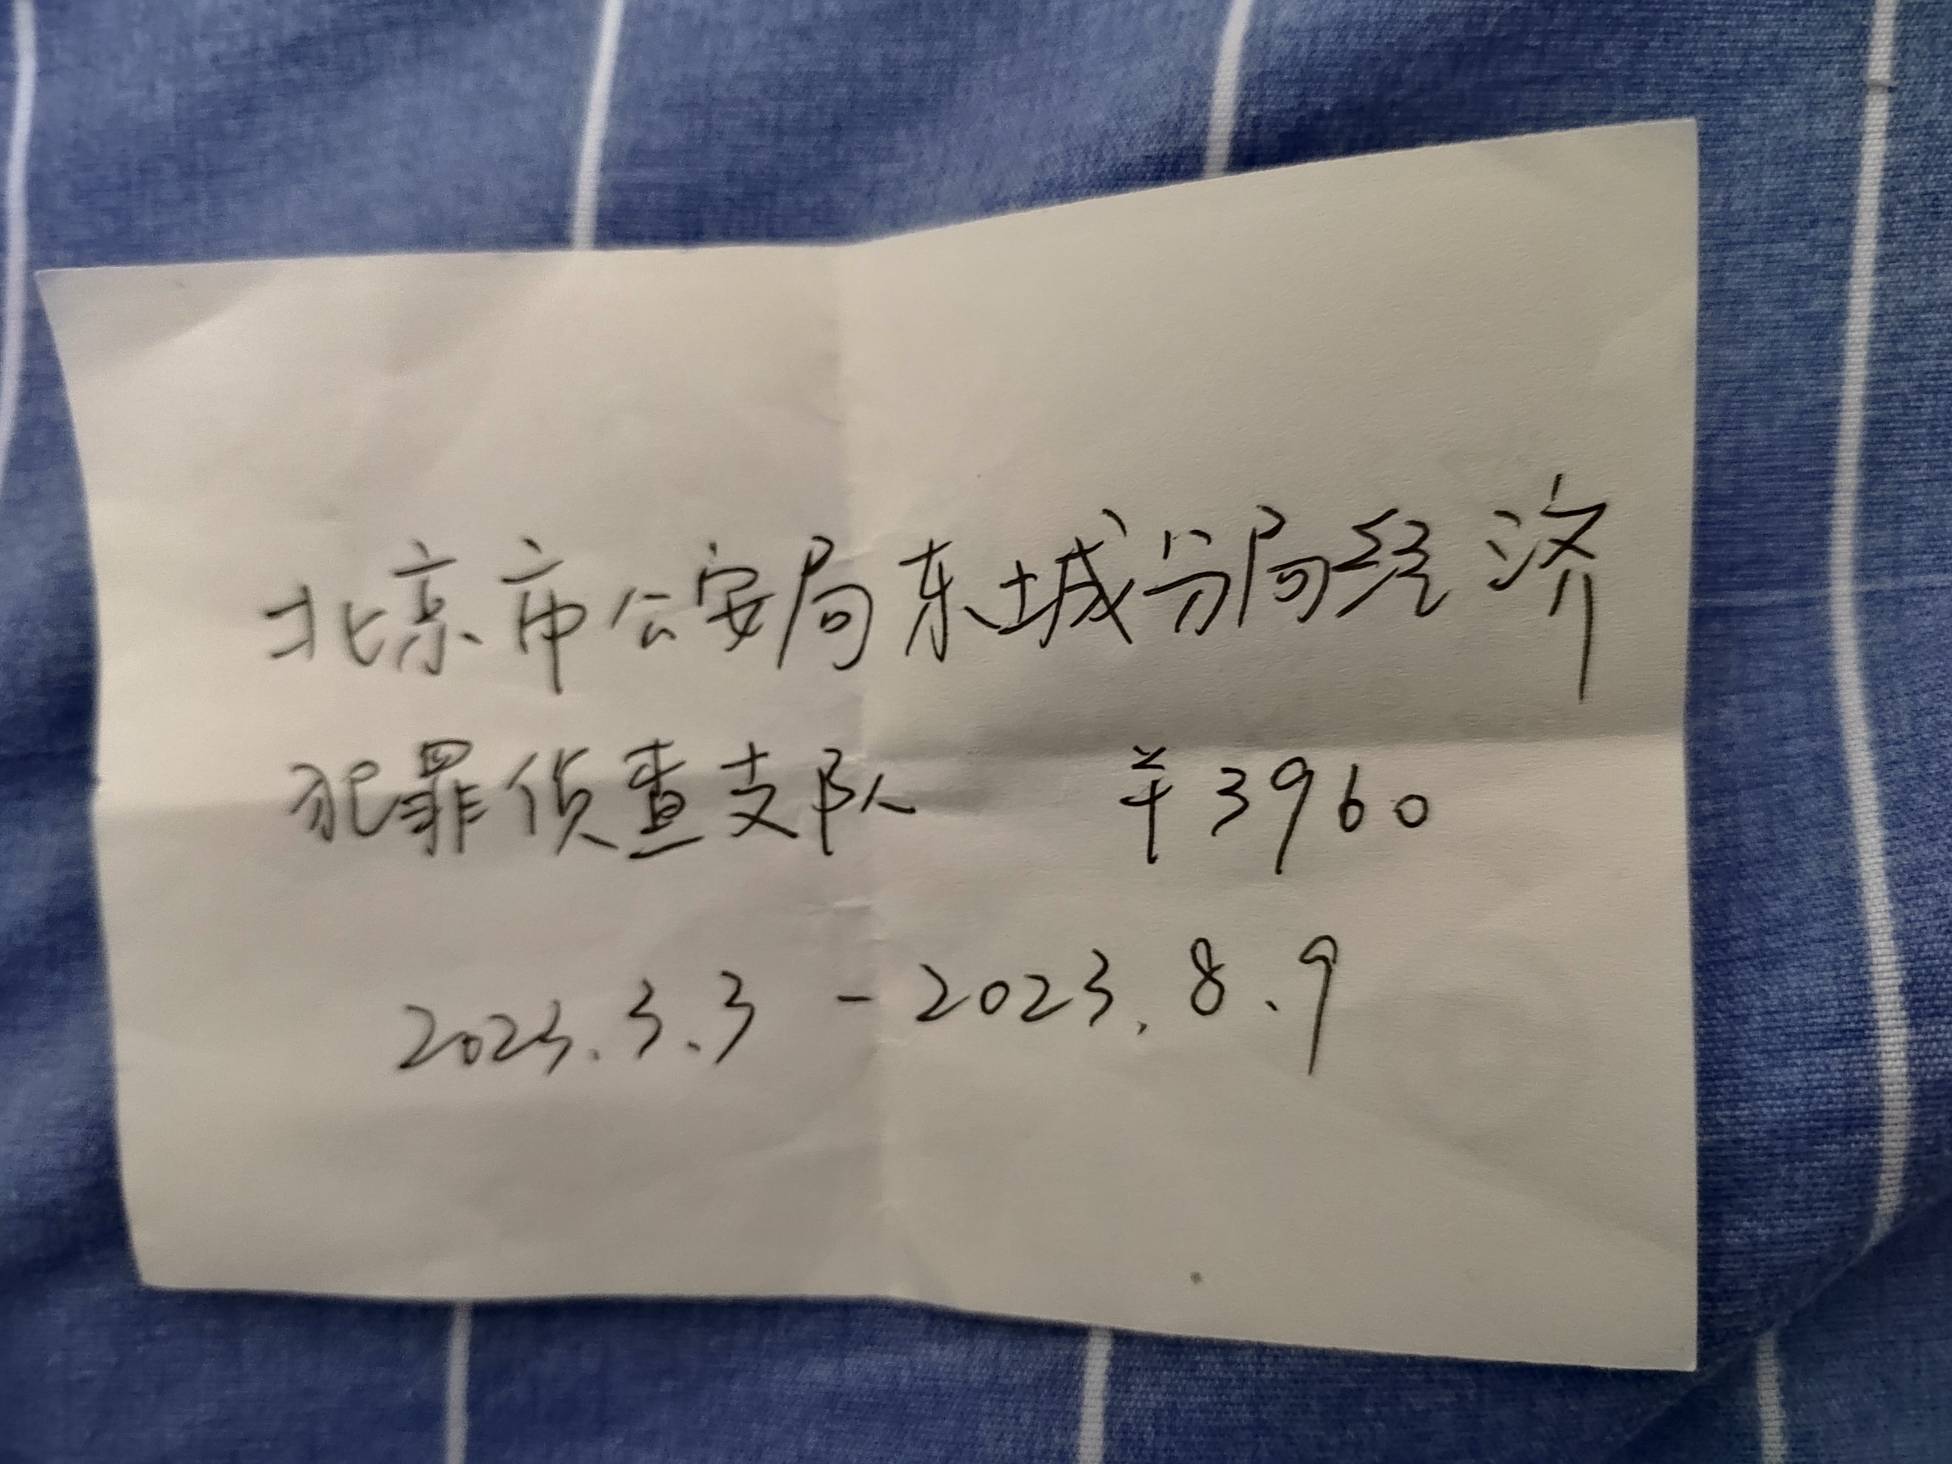 北京市公安局东城分局经济
犯罪侦查支队 ¥3960
2023.3.3 - 2023.8.9